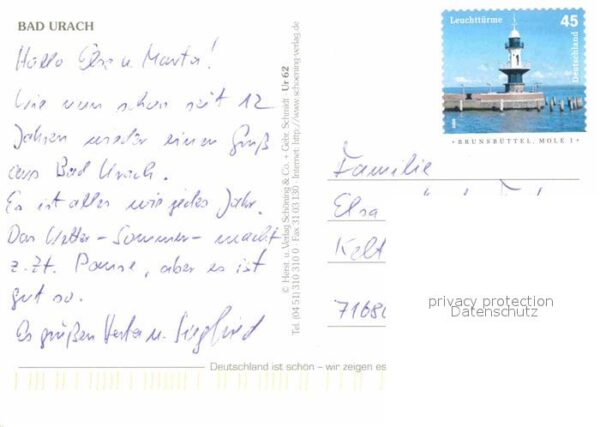 BAD URACH
Hallo Elsa u. Martin!
Wie nun schon seit 12
Jahren wieder einen Gruß
aus Bad Urach.
Es ist alles wie jedes Jahr.
Das Wetter - Sommer - macht
z.Zt. Pause, aber es ist
gut so.
Es grüßen Herta u. Siegfried
© Herst. u. Verlag Schöning & Co. + Gebr. Schmidt Ur 62
Tel. (04 51) 310 310 0 · Fax 31 03 130 · Internet: http://www.schoening-verlag.de
Leuchttürme 45
Deutschland
BRUNSBÜTTEL, MOLE 1
Familie
Elsa
Kelt
7168
privacy protection
Datenschutz
Deutschland ist schön – wir zeigen es